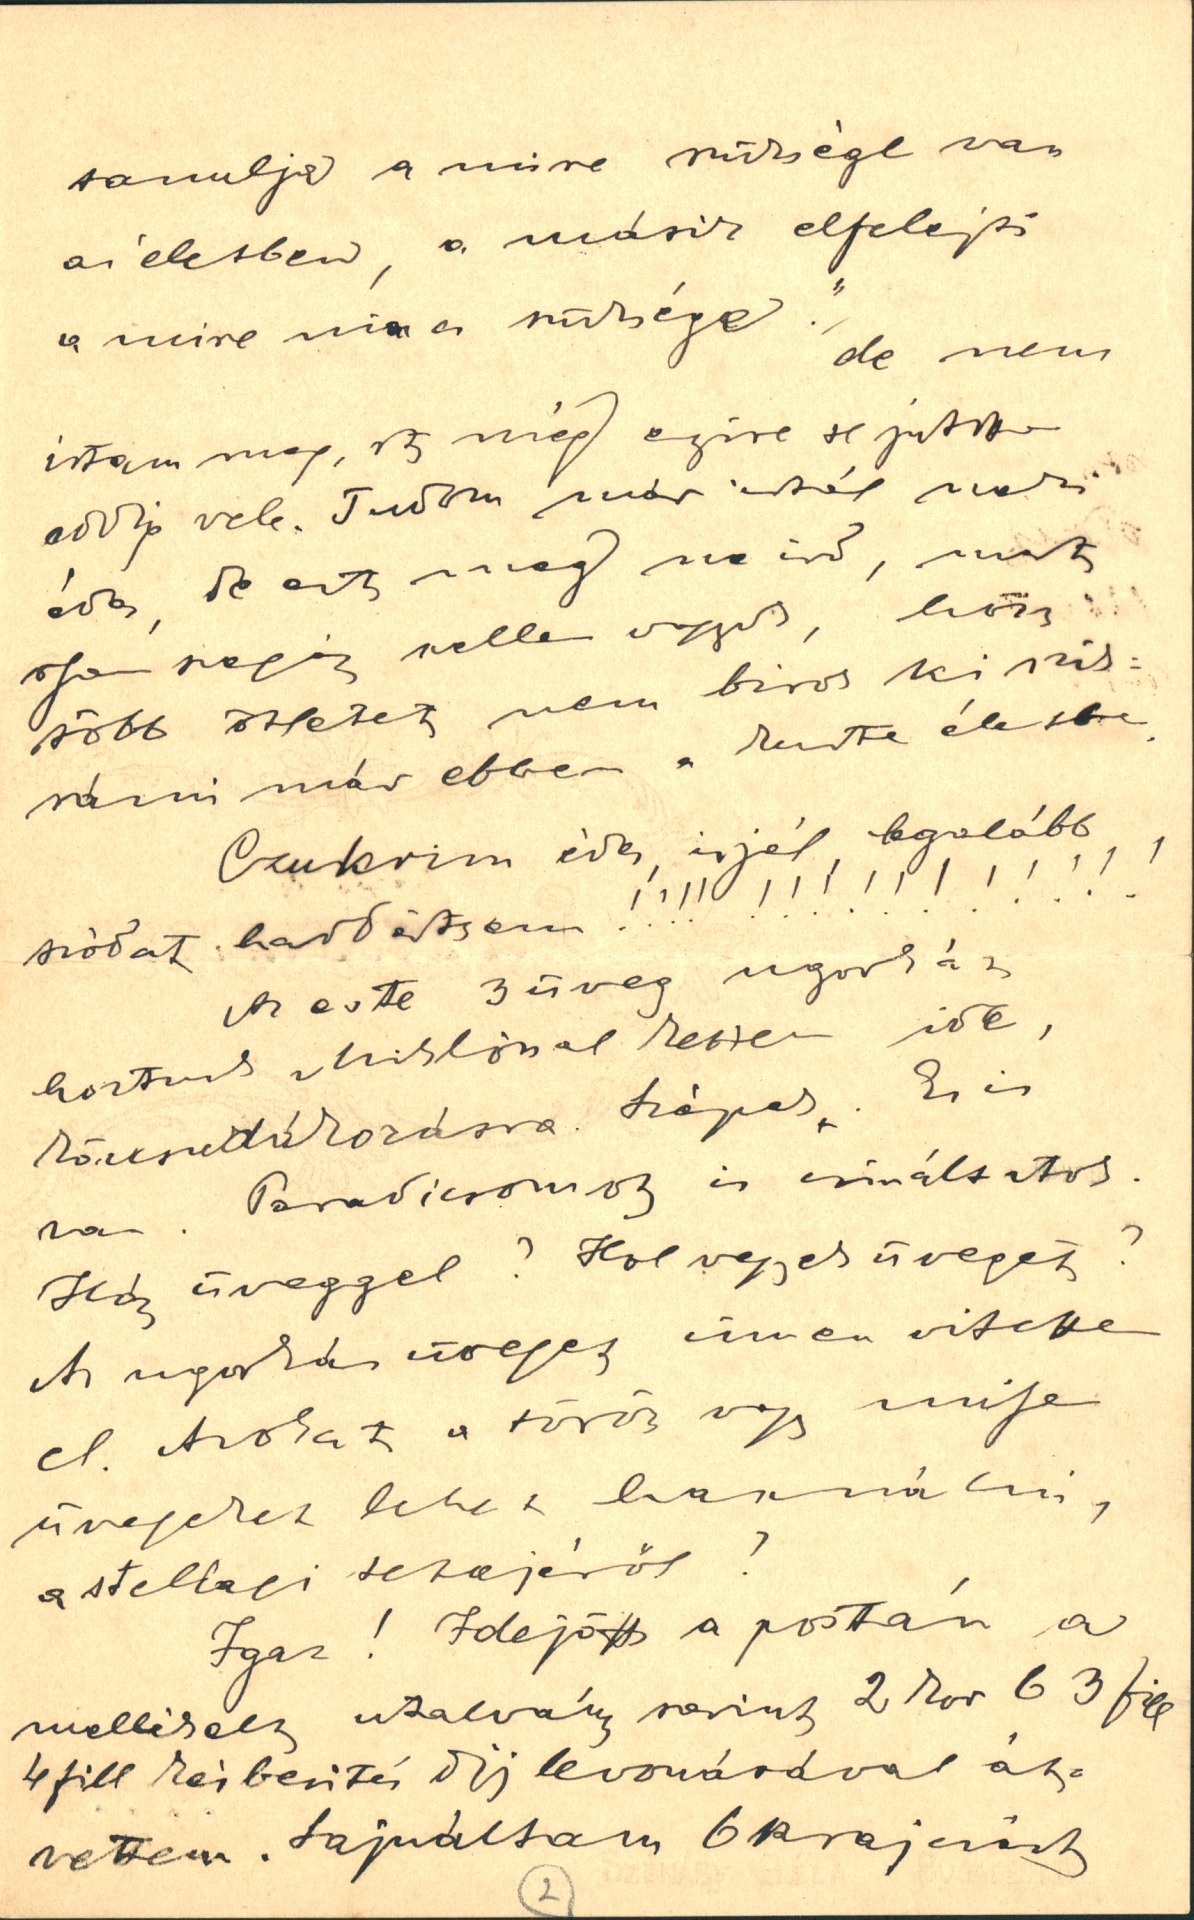 tanulja a mire szüksége van
az életben, a másik elfelejti
a mire nincs szüksége."
de nem
írtam meg, mert még egyre se jutott
eddig vele. Tudom már írtál neki
édes, de ezt meg ne írd, mert
olyan szegény vagyok, hogy
több ötletet nem birok ki pré-
sálni már ebben a életbe.
Czukrim édes, irjál, legalább
szódat hadd értsem!!!!!!!!!!!!!!!!
Az este 3 üveg ugorkát
hoztunk Miklósnál ide,
Szépek. Ez is
van. Paradicsomot is csináltatok.
Hány üveggel? Hol vegyek üveget?
Az ugorkás üveget innen vitette
el. Azokat a törött vagy mifene
üvegeket lehet használni,
a stellagi tetejéről?
Igaz! Idejött a postán a
mellékelt utalvány szerint 2 kor 63 fill
4 fill kézbesítési díj levonásával át-
vettem. Sajnáltam 6 krajczárt
2